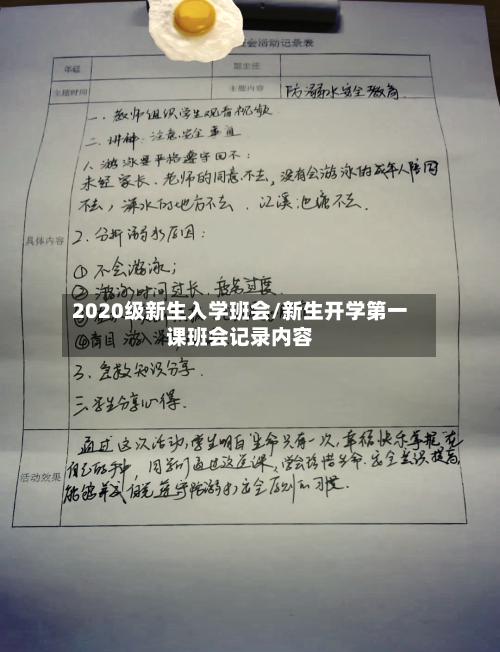 班会活动记录表
年级
班主任
主题时间
主题内容
防溺水安全教育
一.教师组织学生观看视频
二.讲解:注意安全事项
1.游泳要严格遵守四不:
未经家长、老师的同意不去,没有会游泳的成年人陪同
不去,深水的地方不去.江溪池塘不去.
具体内容
2.分析溺水原因:
①不会游泳;
②游泳时间过长,疲劳过度
2020级新生入学班会/新生开学第一
课班会记录内容
④盲目游入深
3.急救知识分享.
三.学生分享心得.
活动效果
通过这次活动,学生明白生命只有一次,幸福快乐掌握在
自己的手中,同学们通过这这课,学会珍惜生命.安全意识提高,
能够养成自觉遵守防溺水安全原则的习惯.